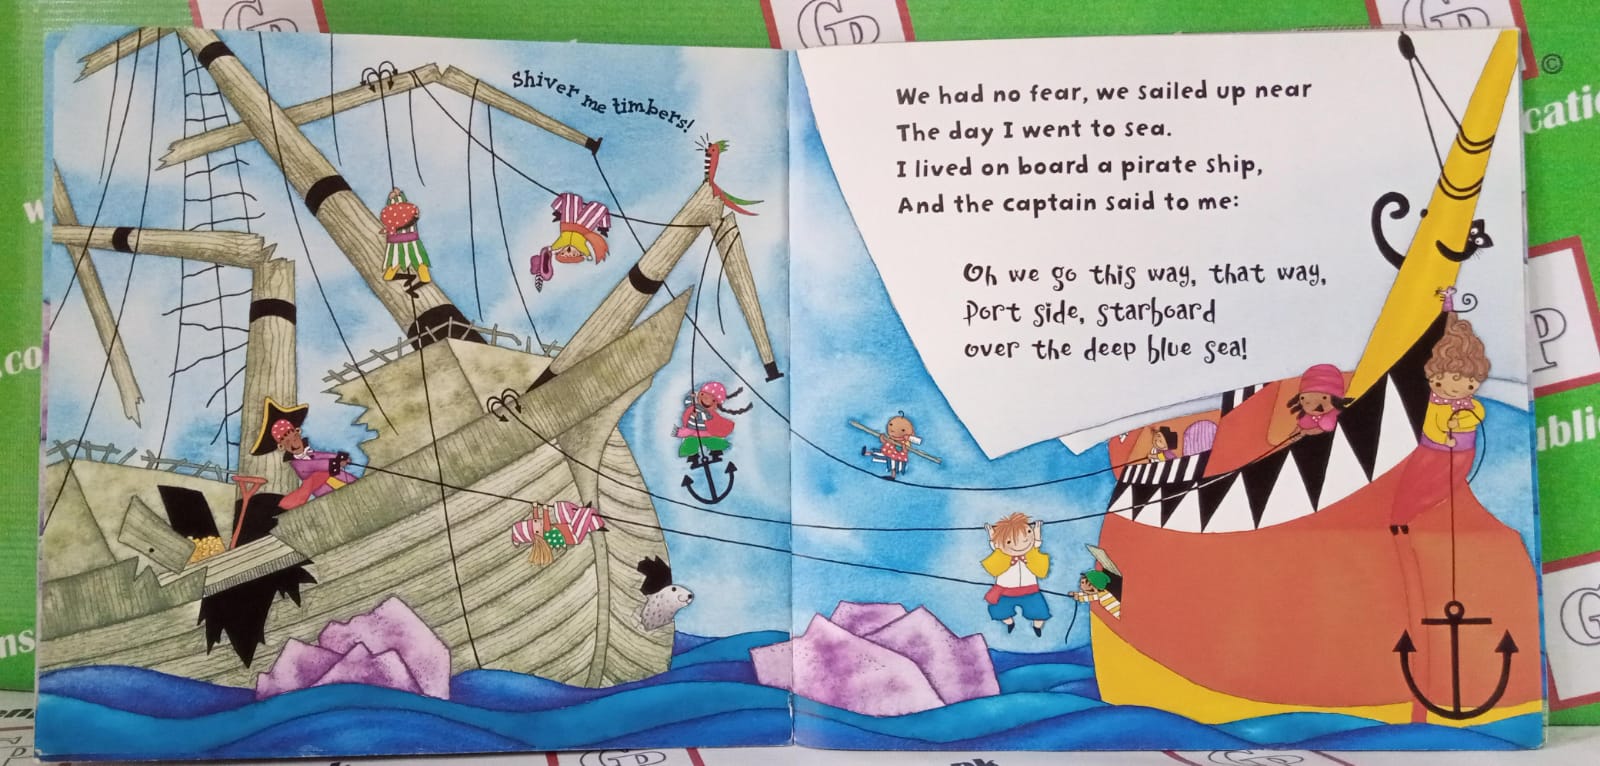 Shiver me timbers!
We had no fear, we sailed up near
The day I went to sea.
I lived on board a pirate ship,
And the captain said to me:
Oh we go this way, that way,
Port side, starboard
over the deep blue sea!